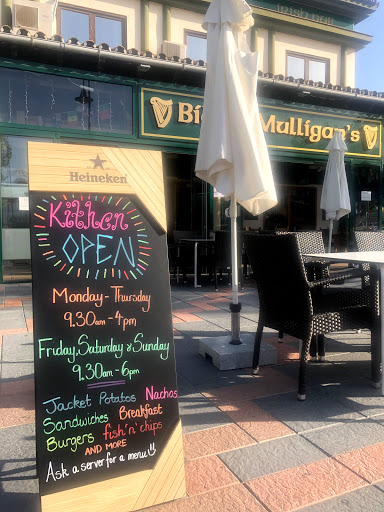 Irish Bar
Mulligan's
Heineken
Kitchen
OPEN
Monday - Thursday
9.30am - 4pm
Friday, Saturday & Sunday
9.30am - 6pm
Jacket Potatos Nachos
Sandwiches Breakfast
Burgers fish 'n' chips
AND MORE
Ask a server for a menu